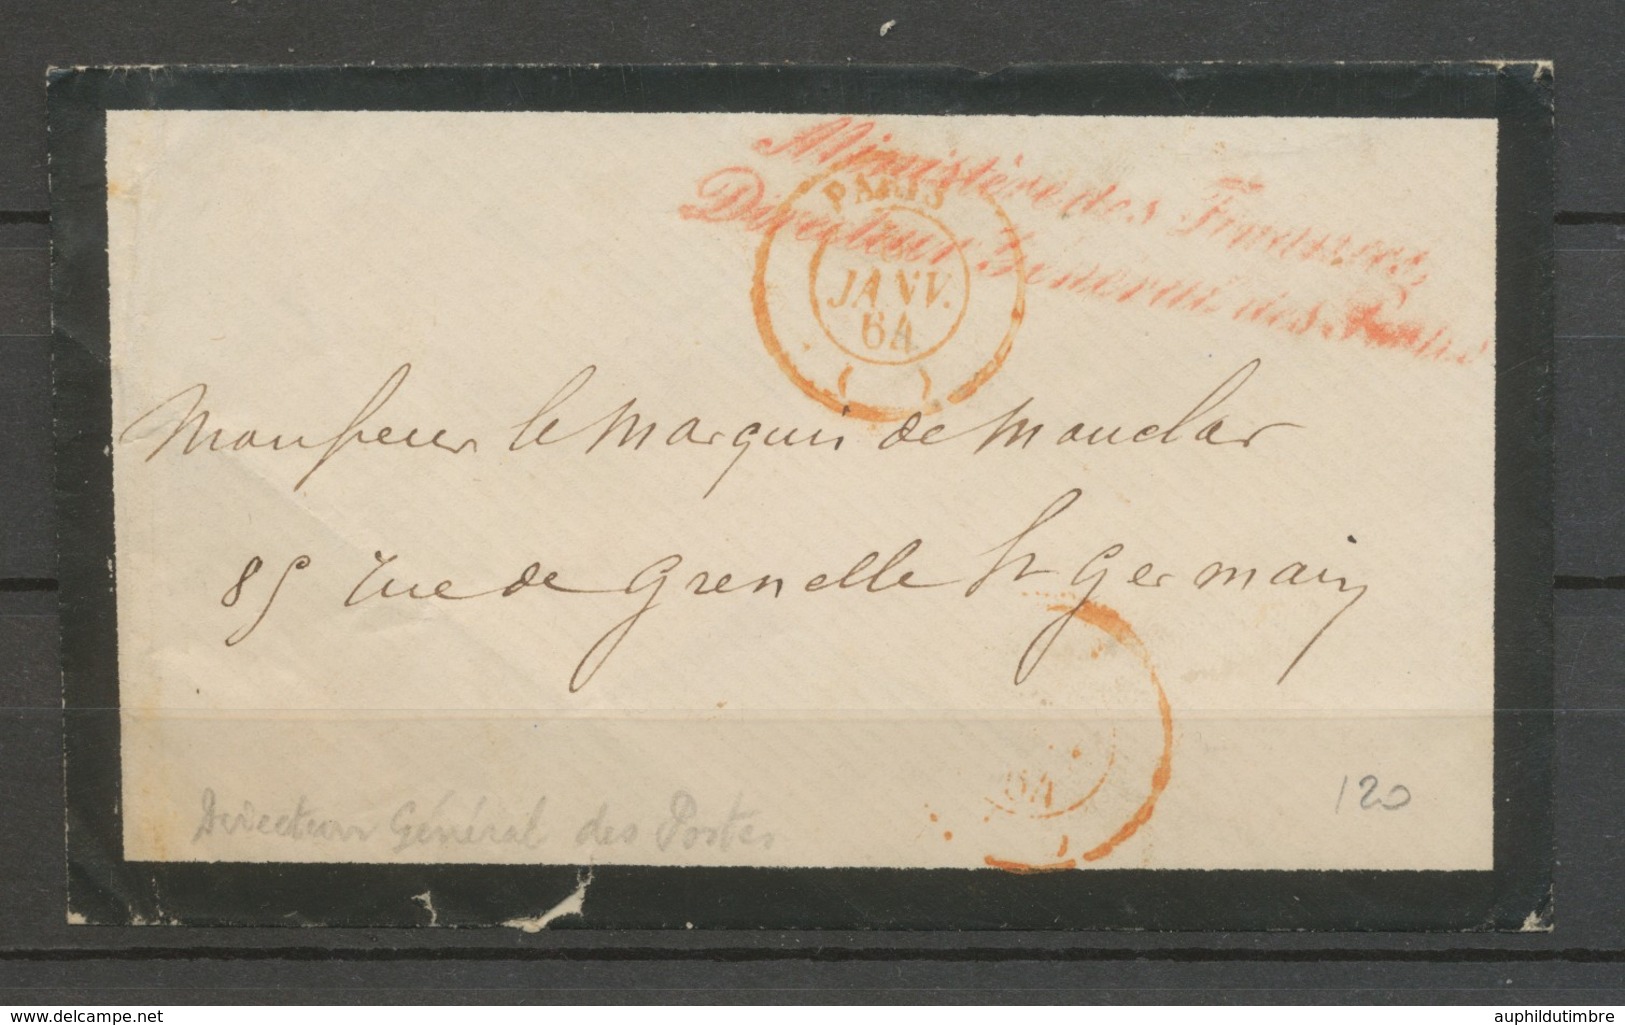 Ministère des Finances,
Directeur Général des Postes
PARIS
JANV.
64
Monsieur le Marquis de Mauclar
85 rue de Grenelle St Germain
64
120
Directeur Général des Postes
www.delcampe.net
auphildutimbre